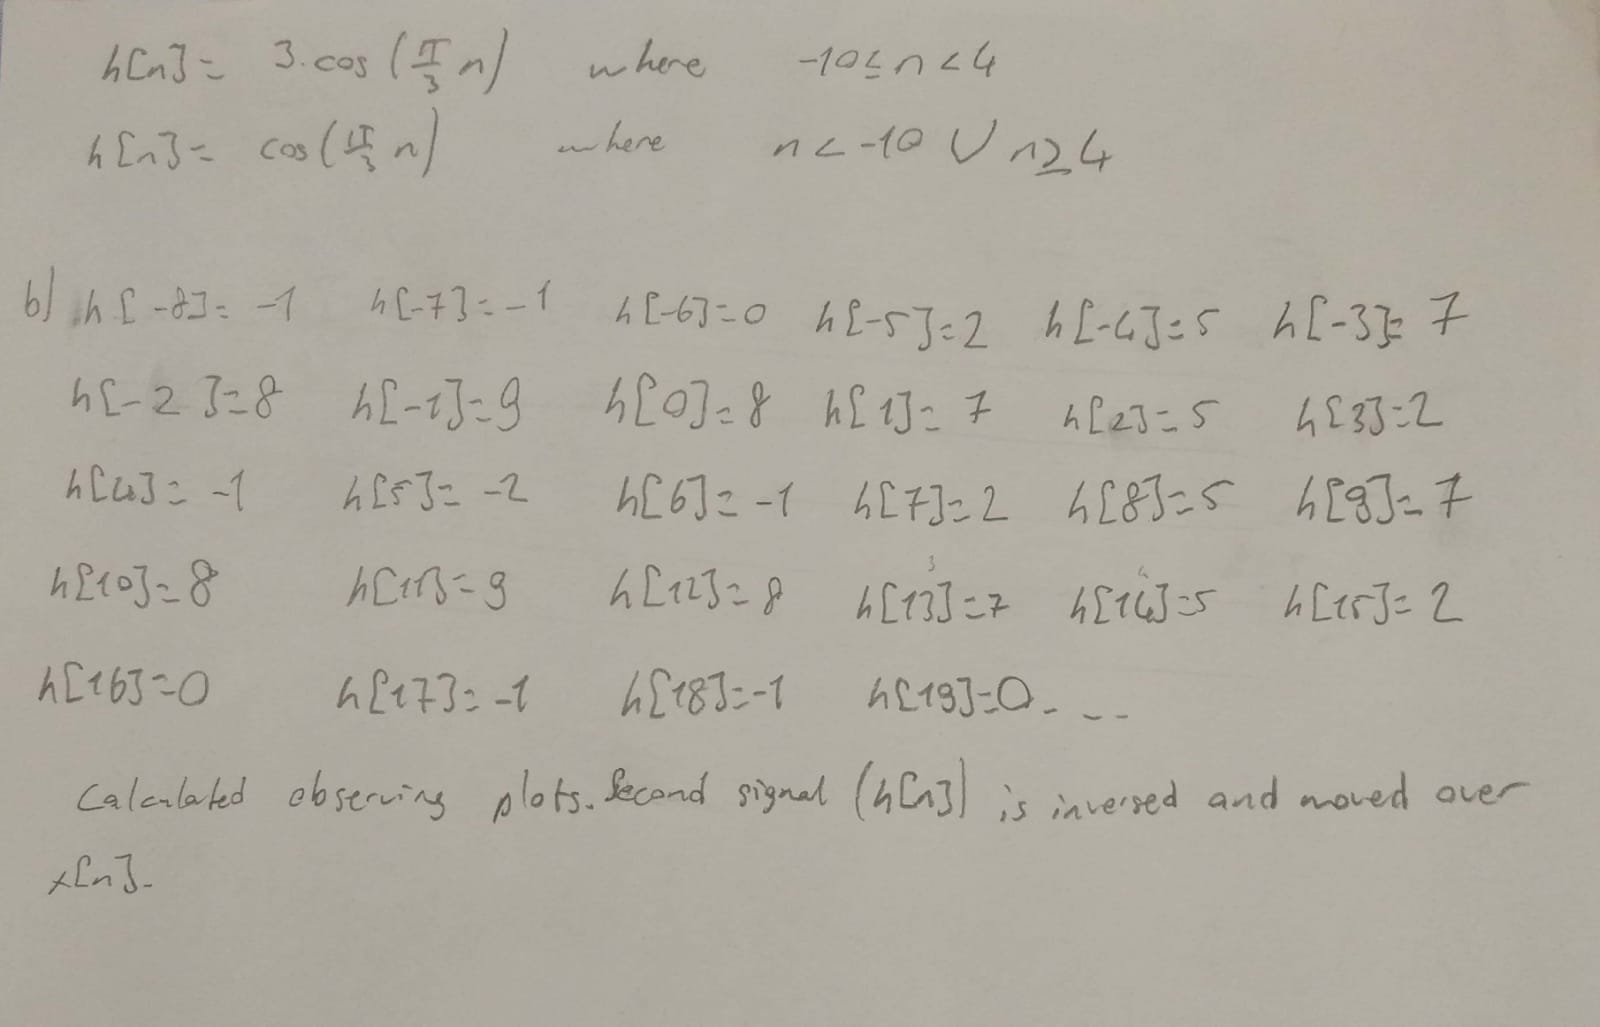 h[n] = 3·cos(π/3 n) where -10 ≤ n < 4
h[n] = cos(π/3 n) where n < -10 ∨ n ≥ 4
b) h[-8] = -1 h[-7] = -1 h[-6] = 0 h[-5] = 2 h[-4] = 5 h[-3] = 7
h[-2] = 8 h[-1] = 9 h[0] = 8 h[1] = 7 h[2] = 5 h[3] = 2
h[4] = -1 h[5] = -2 h[6] = -1 h[7] = 2 h[8] = 5 h[9] = 7
h[10] = 8 h[11] = 9 h[12] = 8 h[13] = 7 h[14] = 5 h[15] = 2
h[16] = 0 h[17] = -1 h[18] = -1 h[19] = 0 - - -
Calculated observing plots. Second signal (h[n]) is inversed and moved over
x[n].